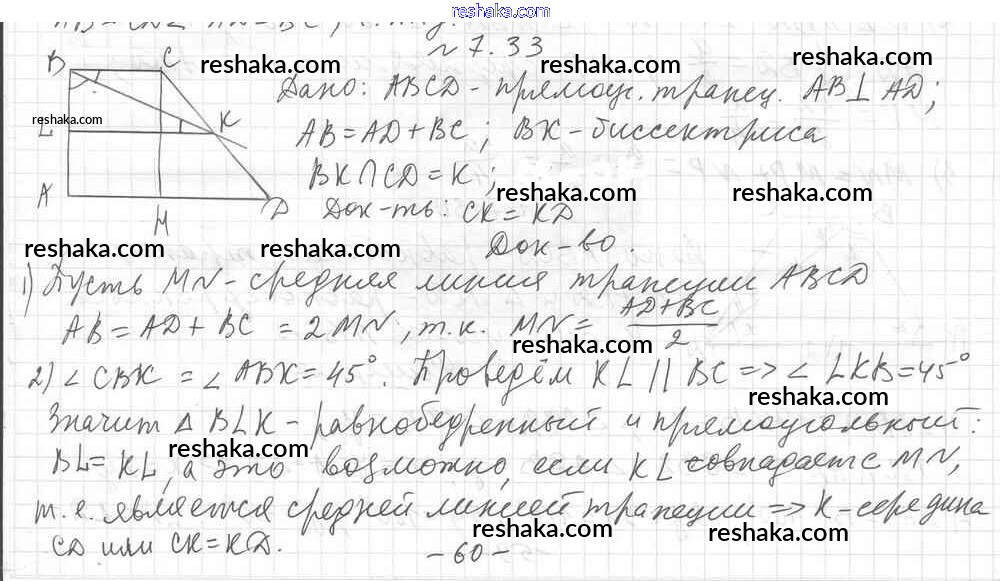 reshaka.com
№ 7.33
B C K L A M D
Дано: ABCD - прямоуг. трапец. AB⊥AD;
AB = AD + BC; BK - биссектриса
BK∩CD = K;
Док-ть: CK = KD
Док-во.
1) Пусть MN - средняя линия трапеции ABCD
AB = AD + BC = 2MN, т.к. MN = (AD+BC)/2
2) ∠CBK = ∠ABK = 45°. Проведём KL || BC => ∠LKB = 45°
Значит △BLK - равнобедренный и прямоугольный:
BL = KL, а это возможно, если KL совпадает с MN,
т.е. является средней линией трапеции => K - середина
CD или CK = KD.
- 60 -
reshaka.com
reshaka.com
reshaka.com
reshaka.com
reshaka.com
reshaka.com
reshaka.com
reshaka.com
reshaka.com
reshaka.com
reshaka.com
reshaka.com
reshaka.com